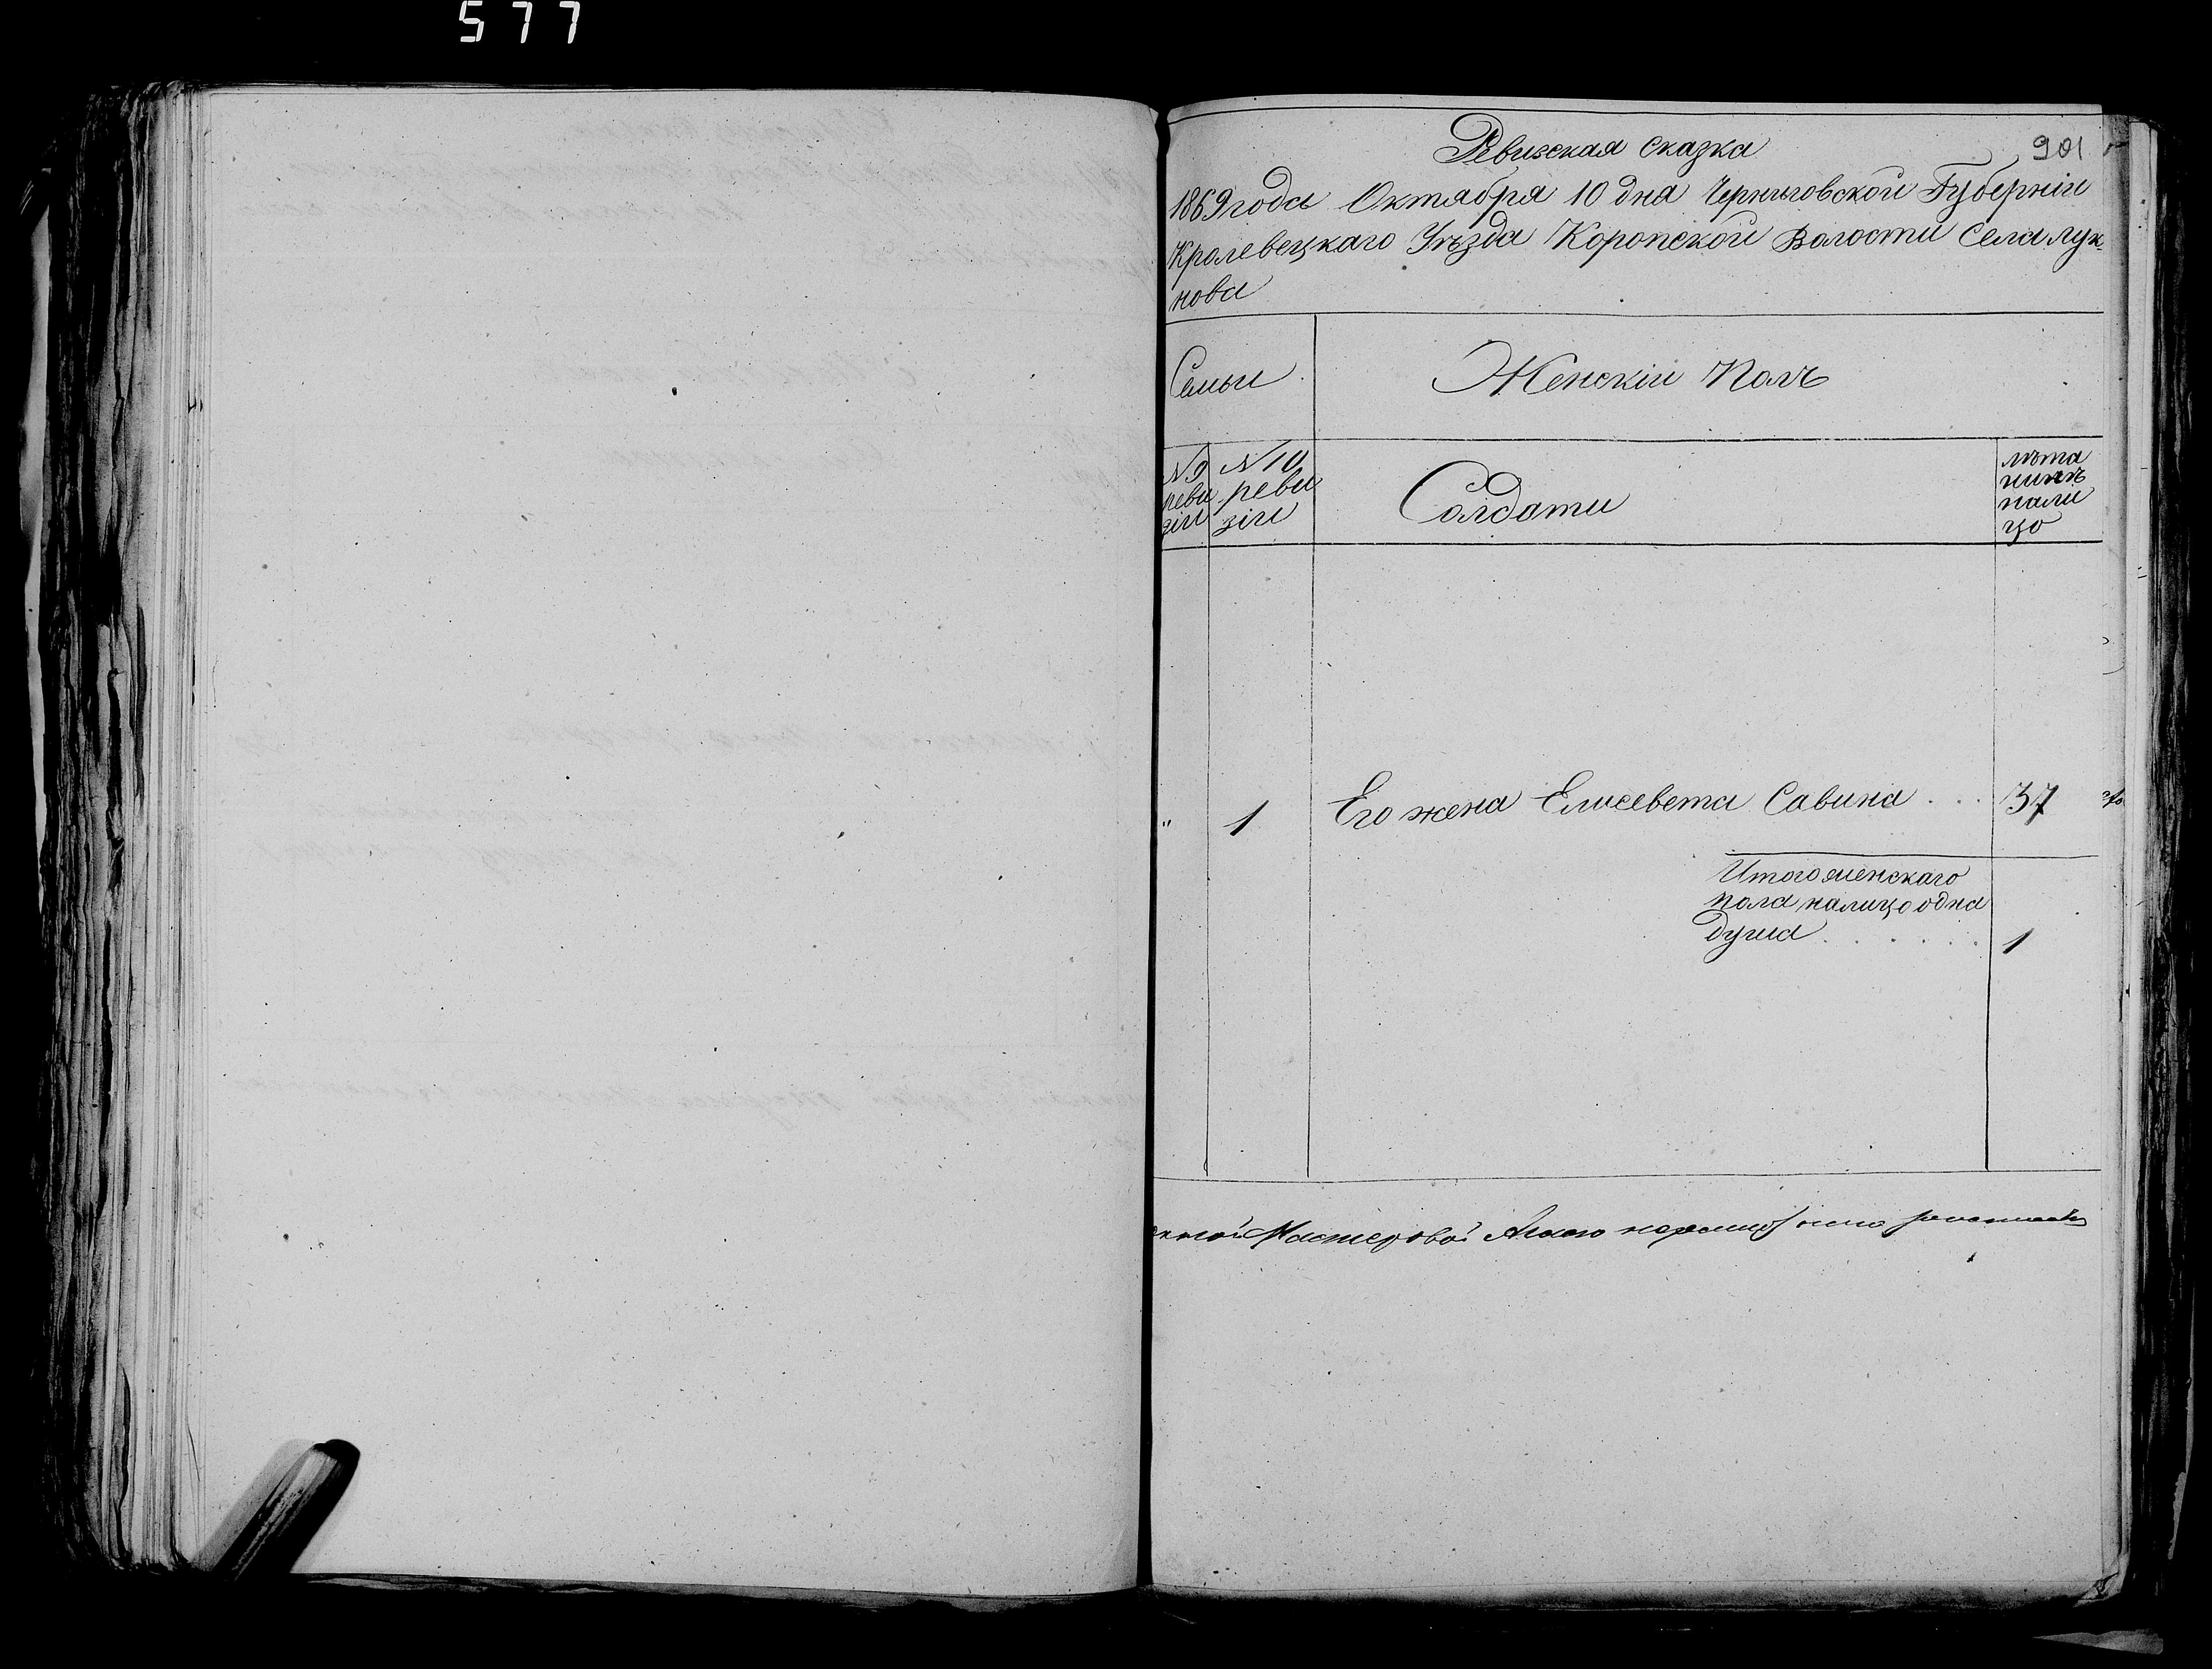 577
901
Ревизская сказка
1869 года Октября 10 дня Черниговской Губернiи
Кролевецкаго Уѣзда Коропской Волости Села Лук-
нова
Семьи
Женскiй Полъ
№ 9 реви зiи
№ 10 реви зiи
Солдати
лѣта
нинѣ
нали
цо
" 1 Его жена Елисевета Савина . . . 37
Итого женскаго
пола налицо одна
душа . . . . . . 1
Мастеровой